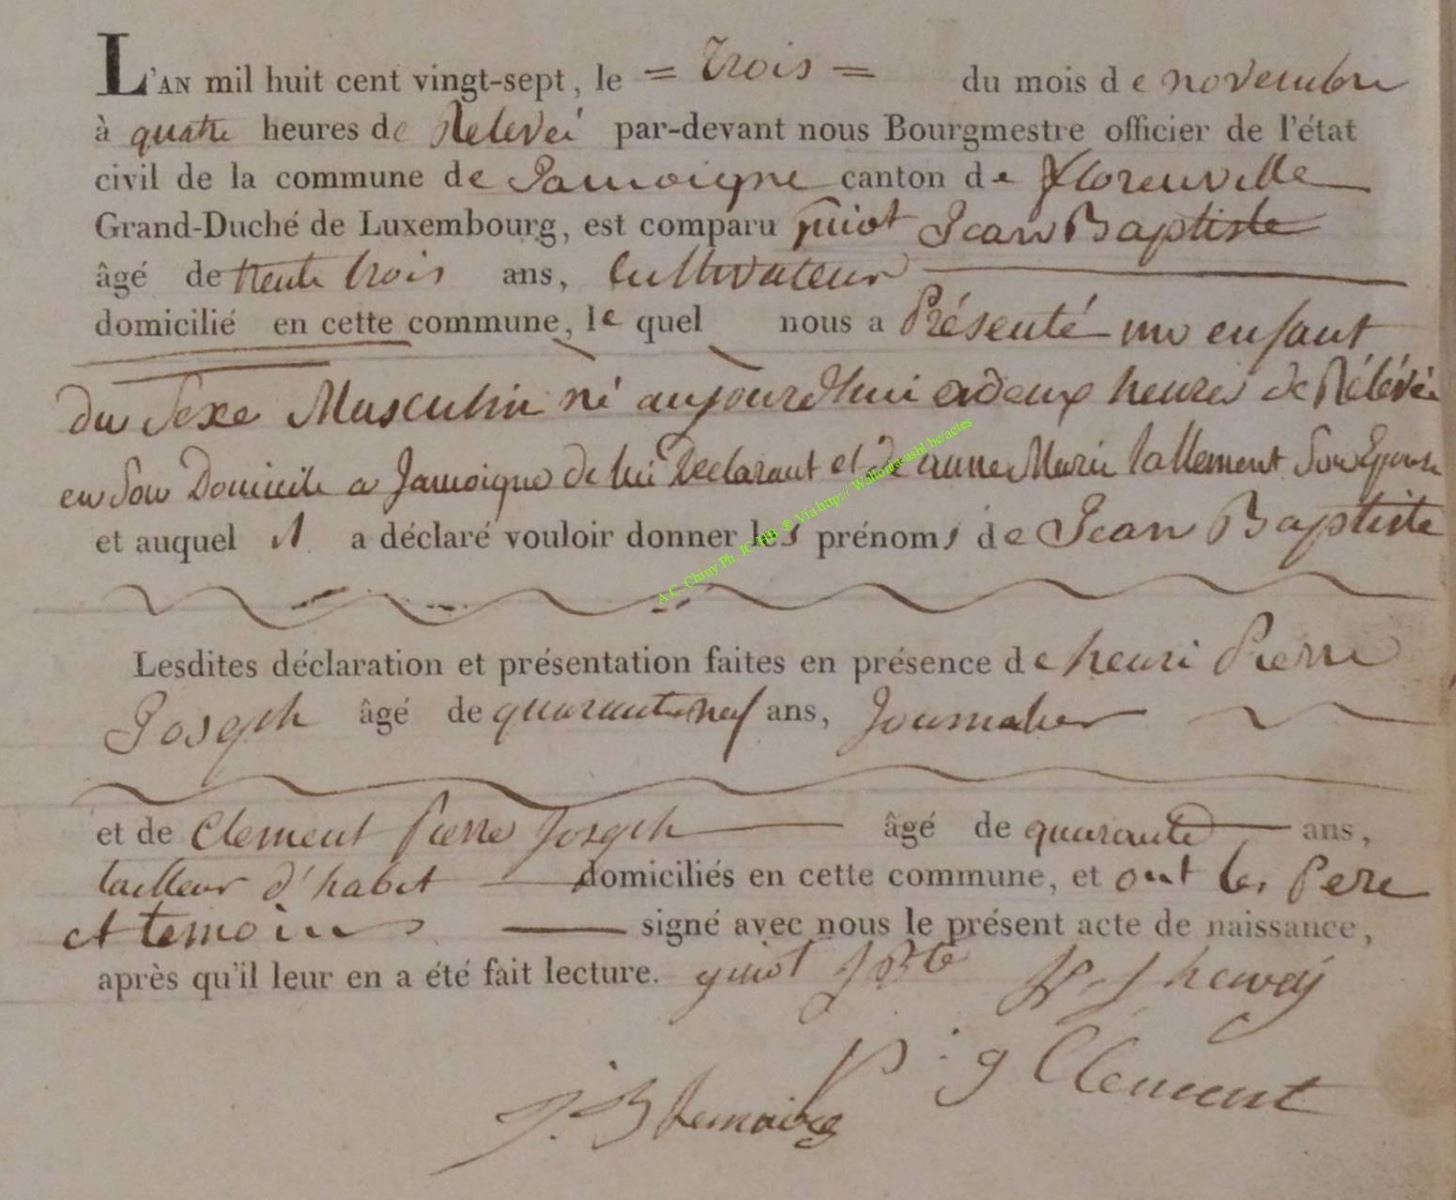 L'AN mil huit cent vingt-sept, le = trois = du mois de novembre
à quatre heures de Relevei par-devant nous Bourgmestre officier de l'état
civil de la commune de Jamoigne canton de florenville
Grand-Duché de Luxembourg, est comparu guiot Jean Baptiste
âgé de trente trois ans, Cultivateur
domicilié en cette commune, le quel nous a Présenté un enfant
du Sexe Masculin né aujourd'hui a deux heures de Rélévée
en Son Domicile a Jamoigne de lui Declarant et de anne Marie lallement Son Epouse
et auquel il a déclaré vouloir donner les prénoms de Jean Baptiste
A.C. Chiny Ph. JC HB ® Via http:// Wallonia-asbl.be/actes
Lesdites déclaration et présentation faites en présence de henri Pierre
Joseph âgé de quarante neuf ans, Journalier
et de Clement Pierre Joseph âgé de quarante ans,
tailleur d'habit domiciliés en cette commune, et ont les Pere
et temoins signé avec nous le présent acte de naissance,
après qu'il leur en a été fait lecture. guiot J Bte P. J henry
P : g Clement
J. B Lemaire